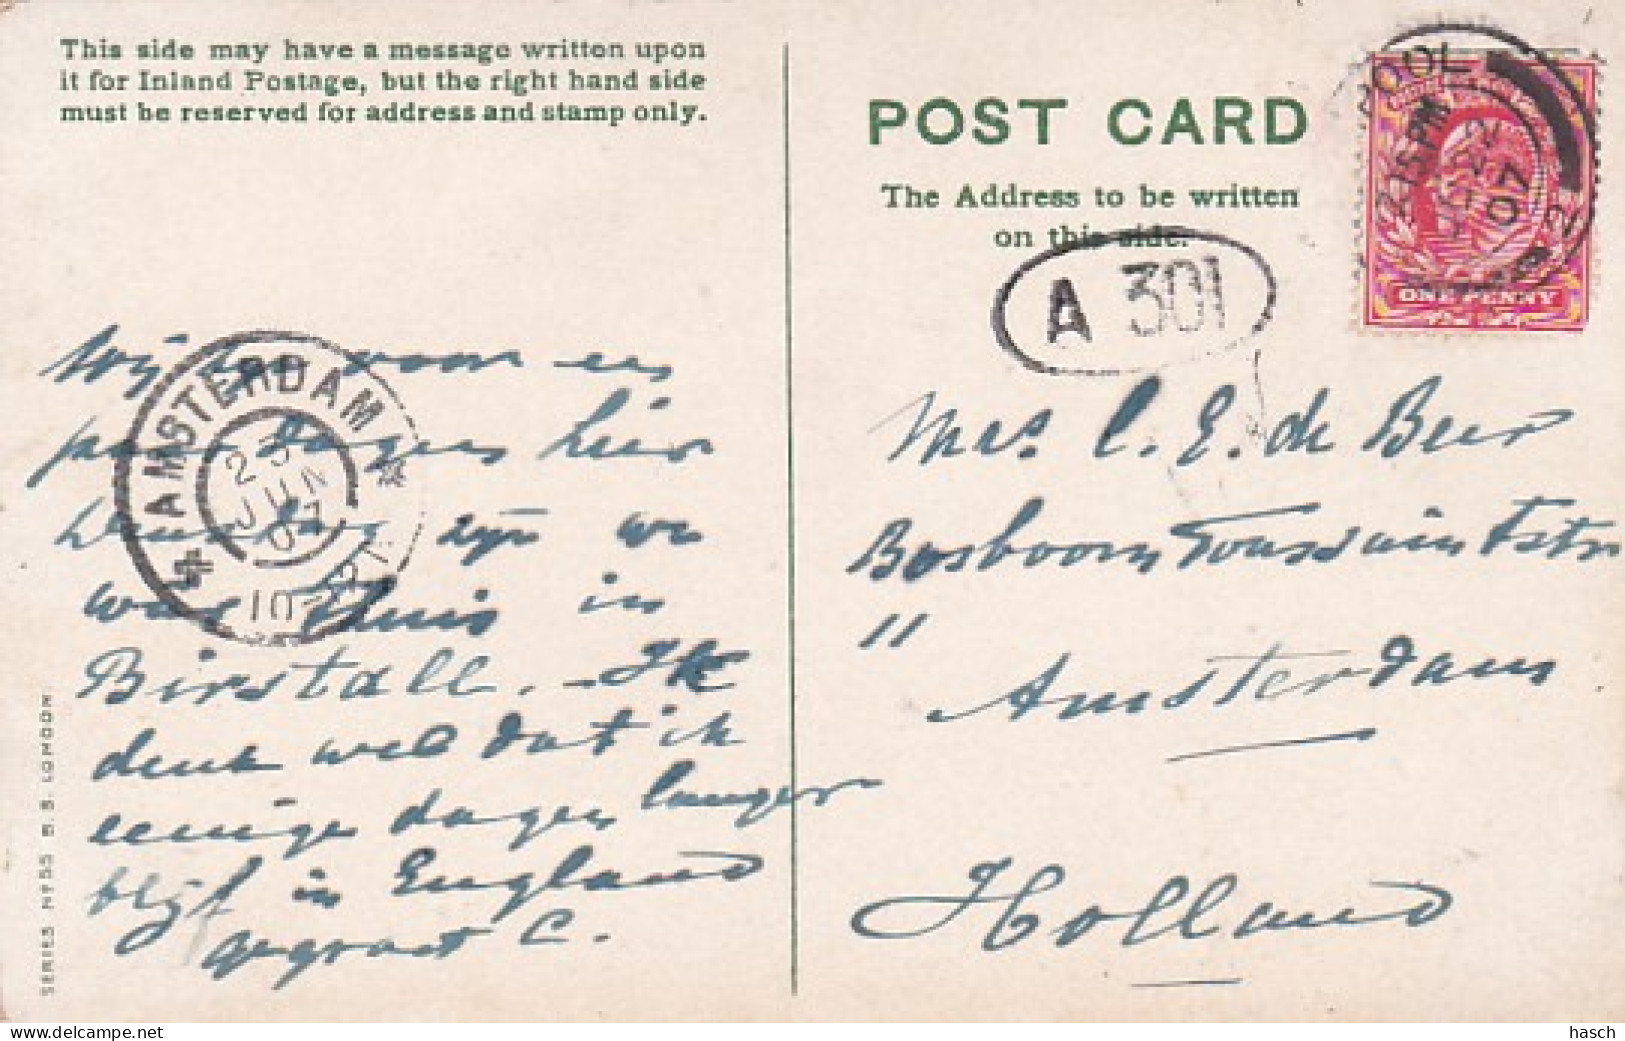 This side may have a message written upon
it for Inland Postage, but the right hand side
must be reserved for address and stamp only.
POST CARD
The Address to be written
on this side.
A 301
OOL
2.15 PM
22
07
2
ONE PENNY
AMSTERDAM
JUN
07
Wij voor een
paar dagen hier
zijn we
weer thuis in
Birstall. - Ik
denk wel dat ik
eenige dagen langer
blijf in England
gegroet C.
Mrs. C. E. de Beer
Bosboom Toussaintstr
11
Amsterdam
Holland
SERIES No 55 B. B. LONDON
hasch